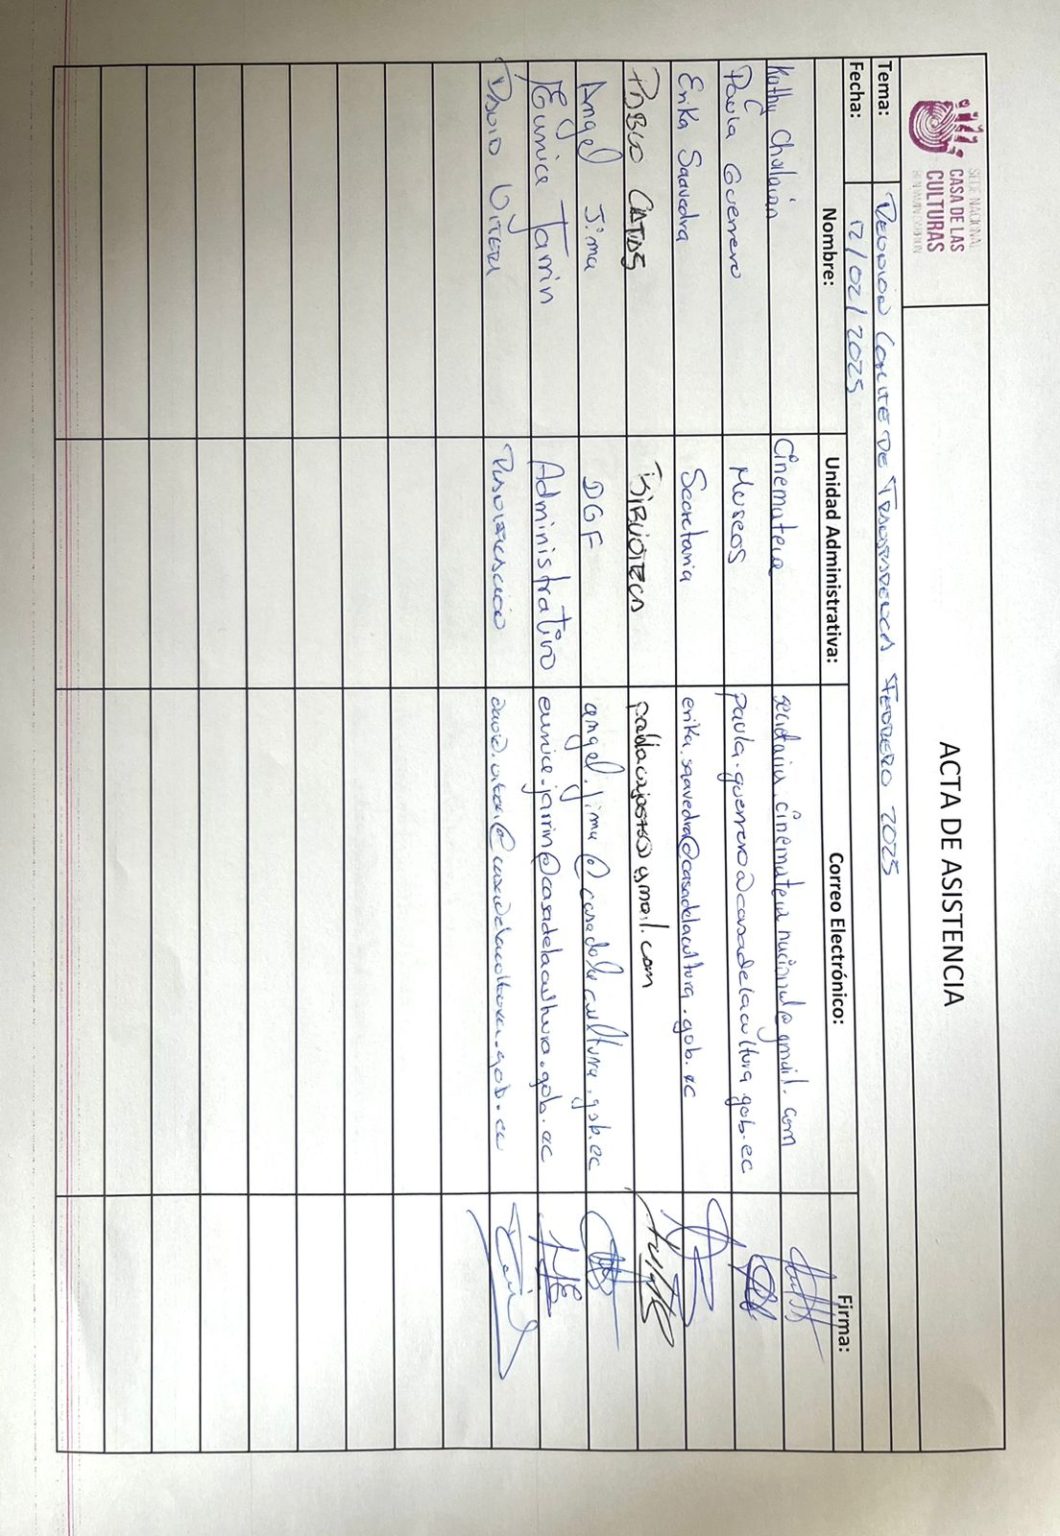 SEDE NACIONAL
CASA DE LAS
CULTURAS
BENJAMÍN CARRIÓN
ACTA DE ASISTENCIA
Tema: REUNIÓN COMITÉ DE TRANSPARENCIA FEBRERO 2025
Fecha: 12/02/2025
Nombre: Unidad Administrativa: Correo Electrónico: Firma:
Kathy Cinemateca secretaria.cinematecanacional@gmail.com
Paula Guerrero Museos paula.guerrero@casadelacultura.gob.ec
Erika Saavedra Secretaria erika.saavedra@casadelacultura.gob.ec
PABLO BIBLIOTECA
Angel Jima DGF angel.jima@casadelacultura.gob.ec
Eunice Jarrin Administrativo eunice.jarrin@casadelacultura.gob.ec
DAVID VITERI PLANIFICACIÓN david.viteri@casadelacultura.gob.ec